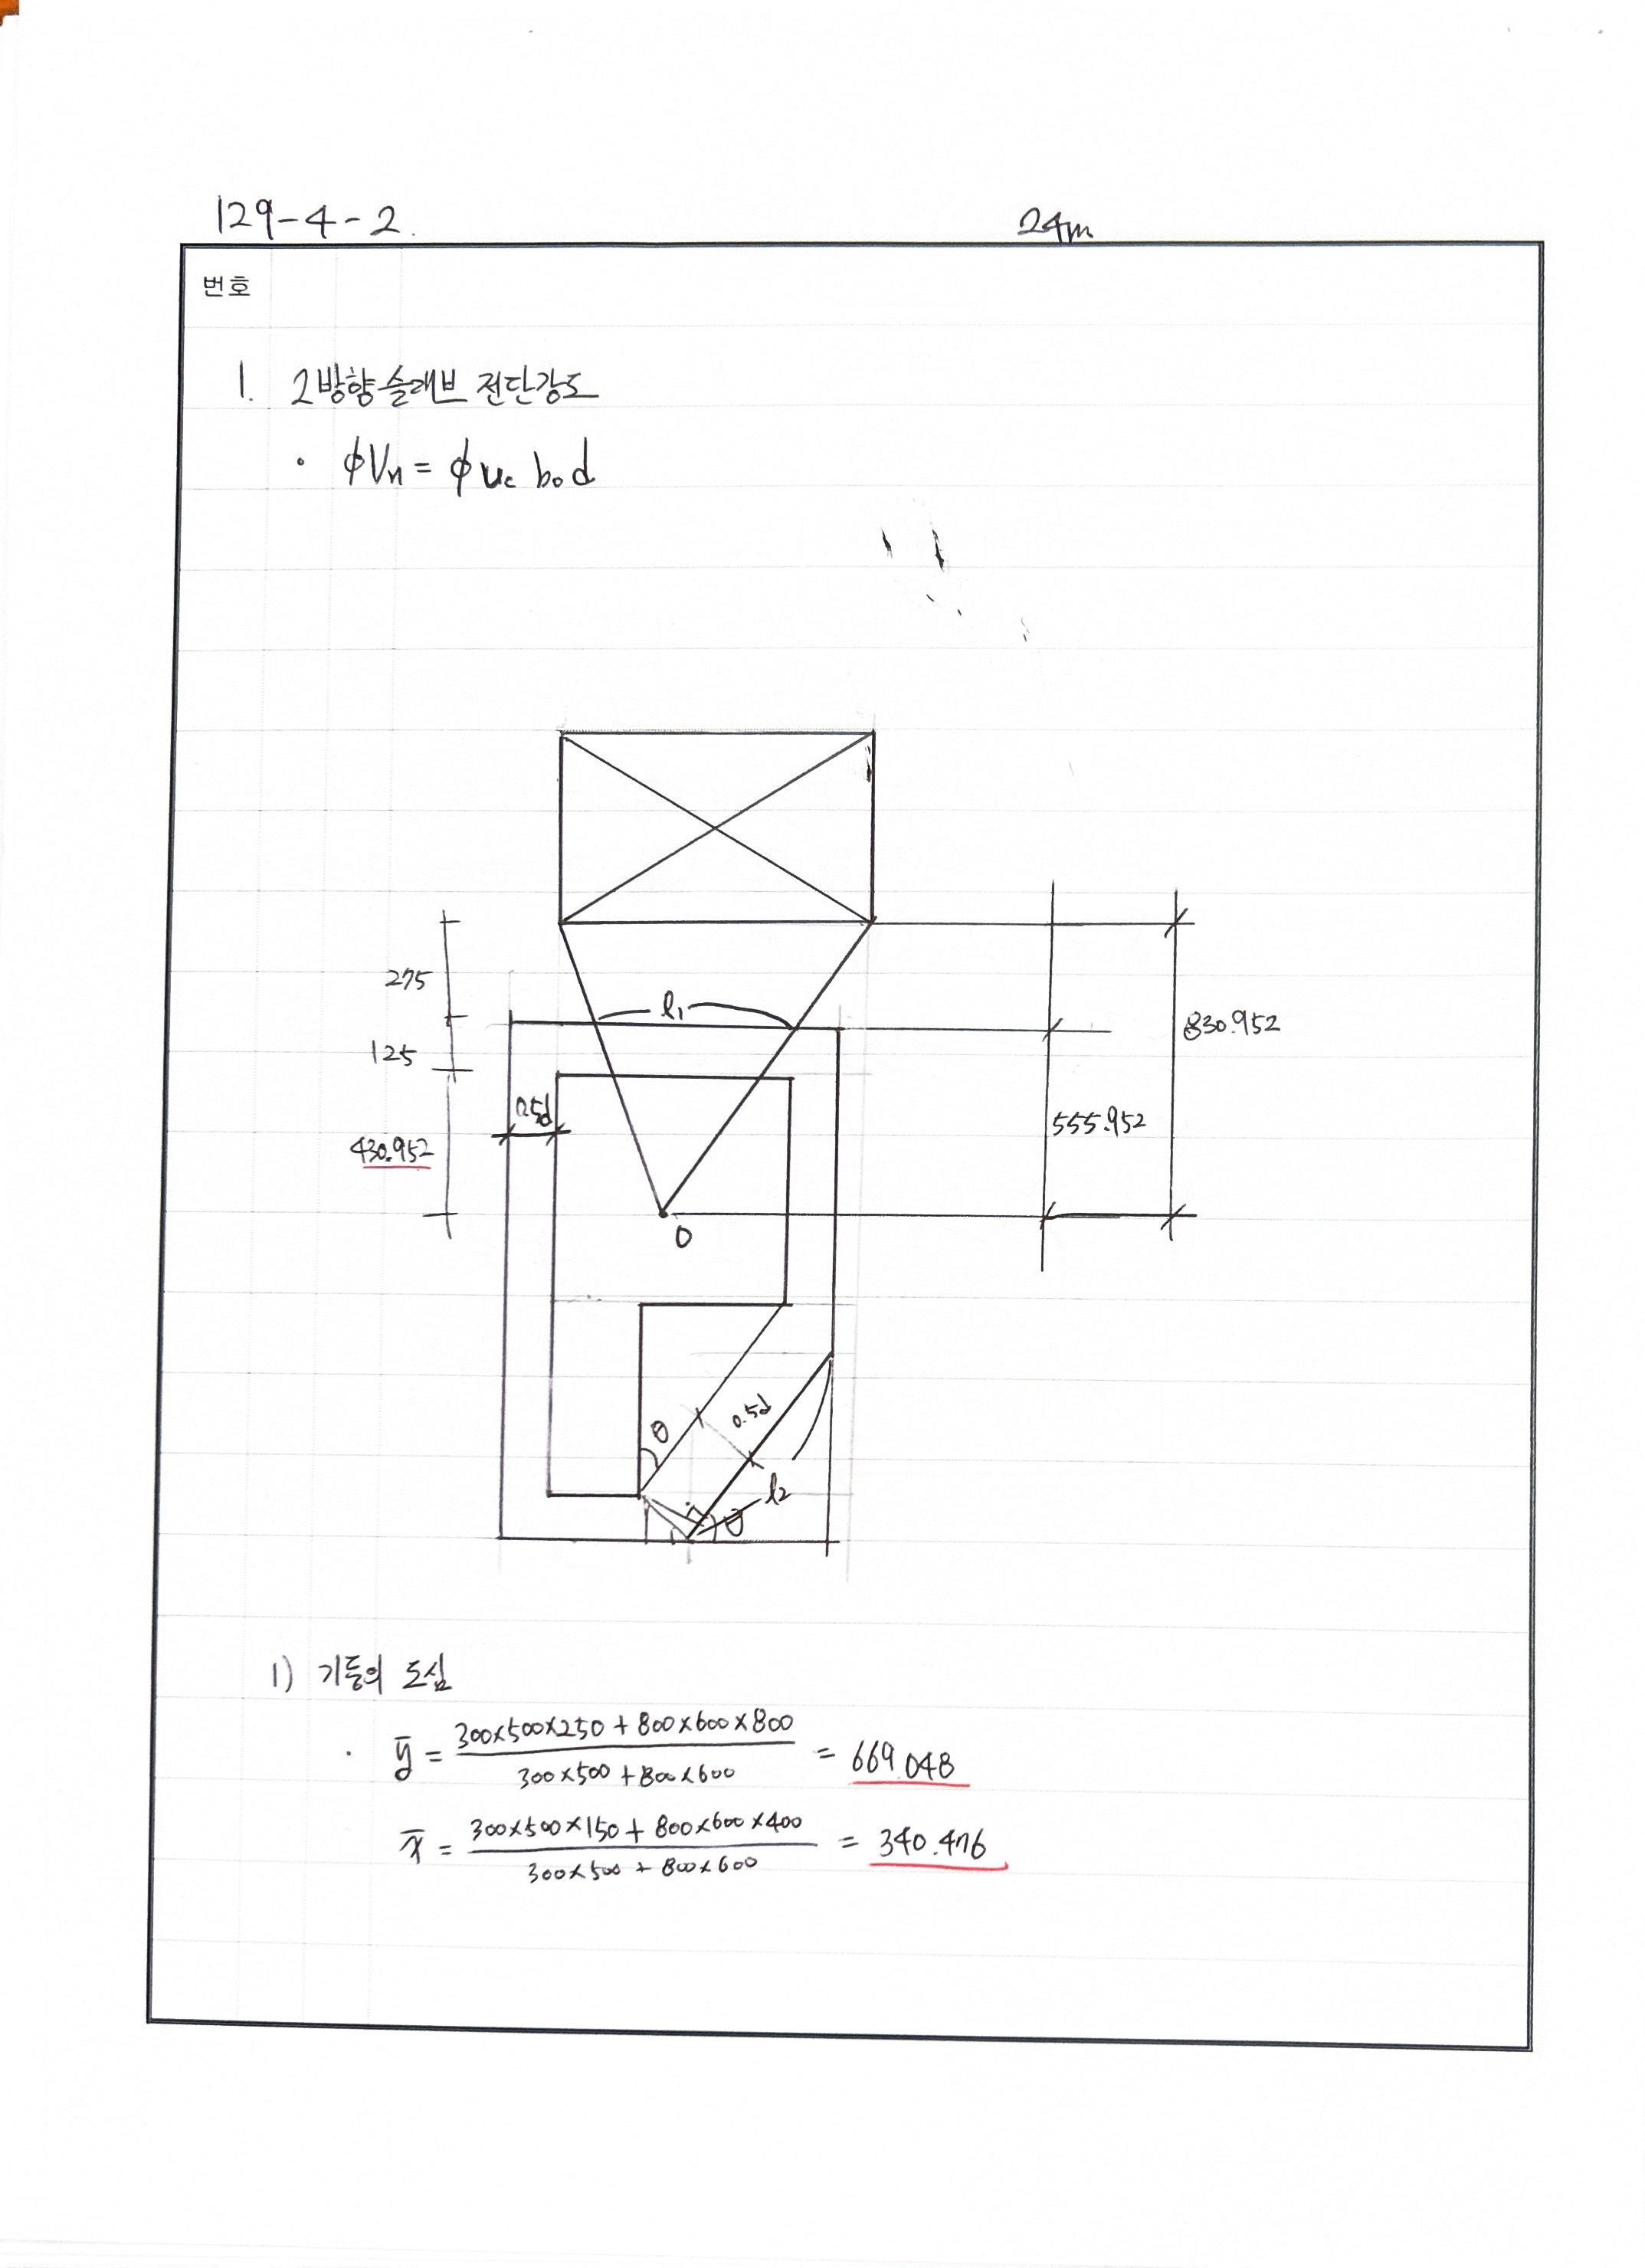 129-4-2.
24m
번호
1. 2방향슬래브 전단강도
· ϕVn = ϕ υc bo d
275
l1
830.952
125
0.5d
555.952
430.952
O
θ
0.5d
l2
θ
1) 기둥의 도심
· ȳ = (300×500×250 + 800×600×800) / (300×500 + 800×600) = 669.048
x̄ = (300×500×150 + 800×600×400) / (300×500 + 800×600) = 340.476